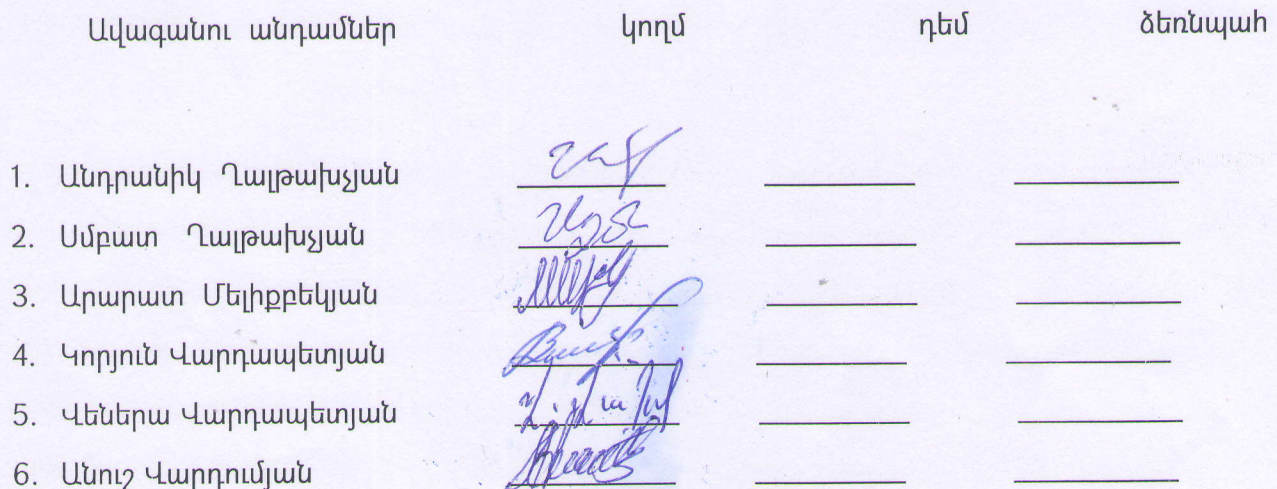 Ավագանու անդամներ կողմ դեմ ձեռնպահ
1. Անդրանիկ Ղալթախչյան
2. Սմբատ Ղալթախչյան
3. Արարատ Մելիքբեկյան
4. Կորյուն Վարդապետյան
5. Վեներա Վարդապետյան
6. Անուշ Վարդումյան